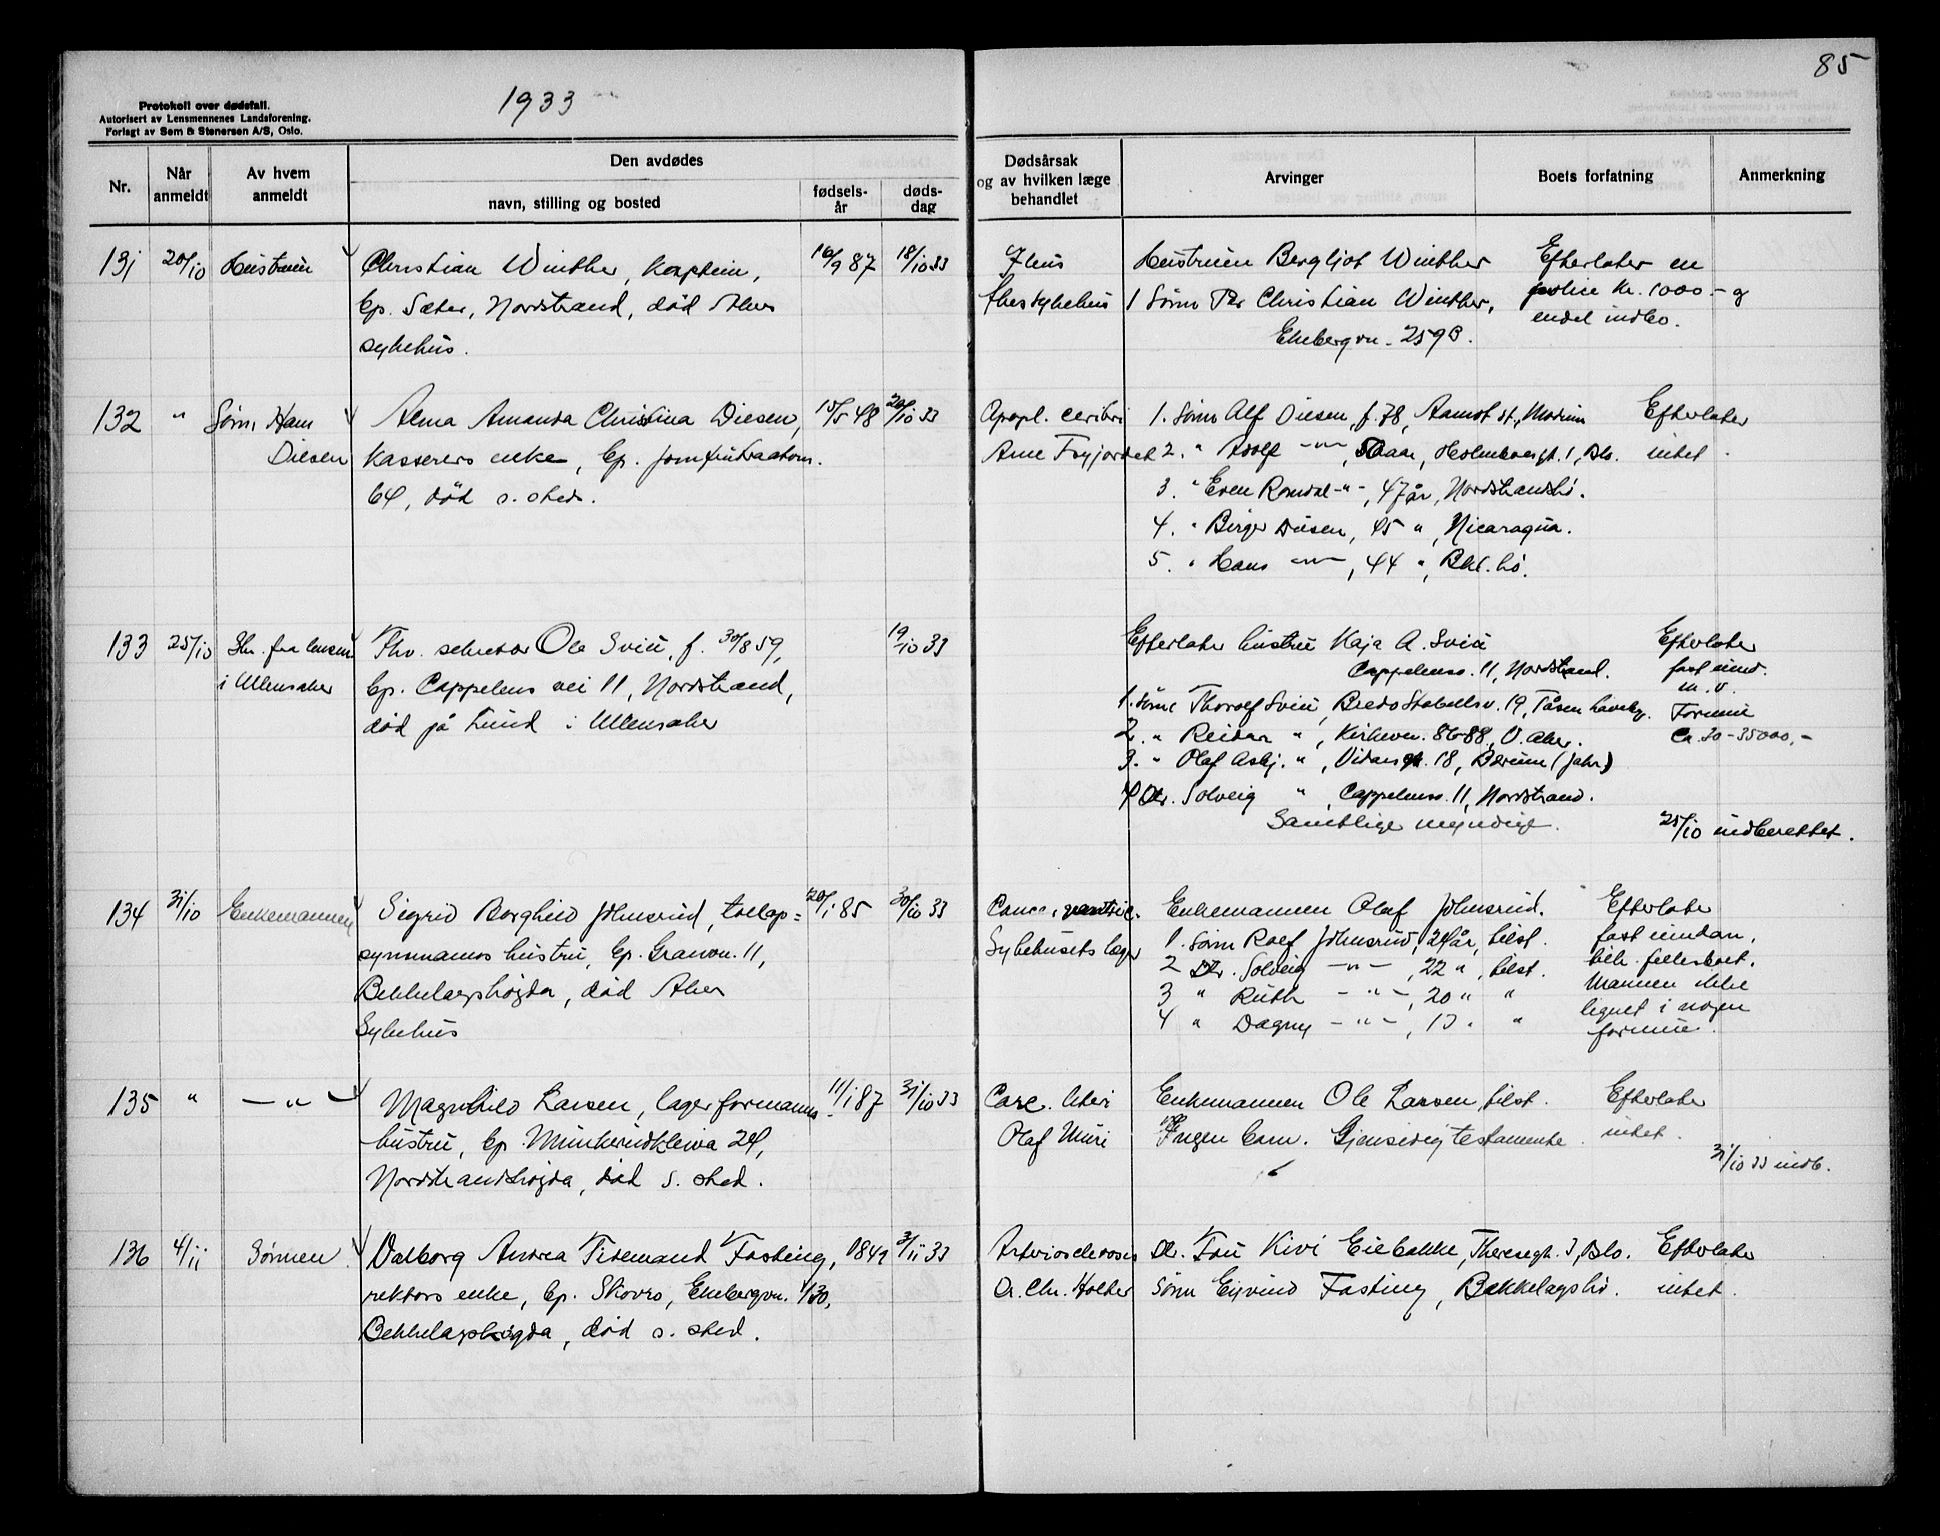 85
1933
Protokoll over dødsfall.
Autorisert av Lensmennenes Landsforening.
Forlagt av Sem & Stenersen A/S, Oslo.
Nr.
Når anmeldt
Av hvem anmeldt
Den avdødes
navn, stilling og bosted
fødsels-år
døds-dag
Dødsårsak og av hvilken læge behandlet
Arvinger
Boets forfatning
Anmerkning
131 20/10 Hustruen Christian Winther, kaptein, 16/9 87 18/10 33
bp. Sæter, Nordstrand, død Akers
sykehus.
Ileus
Akers sykehus
Hustruen Bergljot Winther
1 Sønn Per Christian Winther,
Ekebergvn. 259B.
Efterlater en
police kr. 1000.- og
endel indbo.
132 " Sønn Hans Alma Amanda Christina Diesen, 15/5 48 20/10 33
Diesen kasserers enke, bp. Jomfrubraatvn.
64, død s. sted.
Apopl. ceribri
Arne
1. Sønn Alf Diesen, f. 78, Aamot st., Modum
2. " Adolf -"-, Holmboesgt. 1, Oslo.
3. " Even Romdal -"-, 47 år, Nordstrandshø.
4. " Birger Diesen, 45 ", Nicaragua.
5. " Hans -"-, 44 ", Bkl.hø.
Efterlater
intet.
133 25/10 Skr. fra lensm. Fhv. sekretær Ole Sviu, f. 30/8 59, 19/10 33
i Ullensaker bp. Cappelens vei 11, Nordstrand,
død på Lund i Ullensaker
Efterlater hustru Kaja A. Sviu
Cappelensv. 11, Nordstrand.
1. Sønn Thorolf Sviu, Bredo Stabellsv. 19, Tåsen haveby.
2. " Reidar ", Kirkevn. 86-88, V. Aker.
3. " Olaf Asbj. ", 18, Bærum (Jahr)
4 Dtr. Solveig " Cappelensv. 11, Nordstrand.
Samtlige myndige.
Efterlater
fast eiend.
m.v.
Formue
Ca. 30-35000,-
25/10 indberettet.
134 31/10 Enkemannen Sigrid Borghild Johnsrud, tollop=20/1 85 30/10 33
synsmanns hustru, bp. Granvn. 11,
Bekkelagshøgda, død Aker
Sykehus
Cancer ventric.
Sykehusets læger
Enkemannen Olaf Johnsrud.
1. Sønn Rolf Johnsrud, 24 år, tilst.
2 Dtr. Solveig -"-, 22 ", tilst.
3 " Ruth -"-, 20 " "
4 " Dagny -"-, 13 " "
Efterlater
fast eiendom,
tilh. fellesboet.
Mannen ikke
lignet i nogen
formue.
135 " -"- Magnhild Larsen, lagerformanns 11/1 87 31/10 33
hustru, bp. Munkerudkleiva 24,
Nordstrandshøgda, død s. sted.
Carc. Uteri
Olaf Muri
Enkemannen Ole Larsen, tilst.
Ingen barn. Gjensidig testamente
Efterlater
intet.
31/10 33 indb.
136 4/11 Sønnen Valborg Andrea Tidemand Fasting, 1849 3/11 33
rektors enke, bp. Skovro, Ekebergvn. 130,
Bekkelagshøgda, død s. sted.
Arteriosclerosis
Dr. Chr. Holter
Dtr. Fru Kivi Eiebakke, Theresegt. 3, Oslo.
Sønn Eyvind Fasting, Bekkelagshø.
Efterlater
intet.